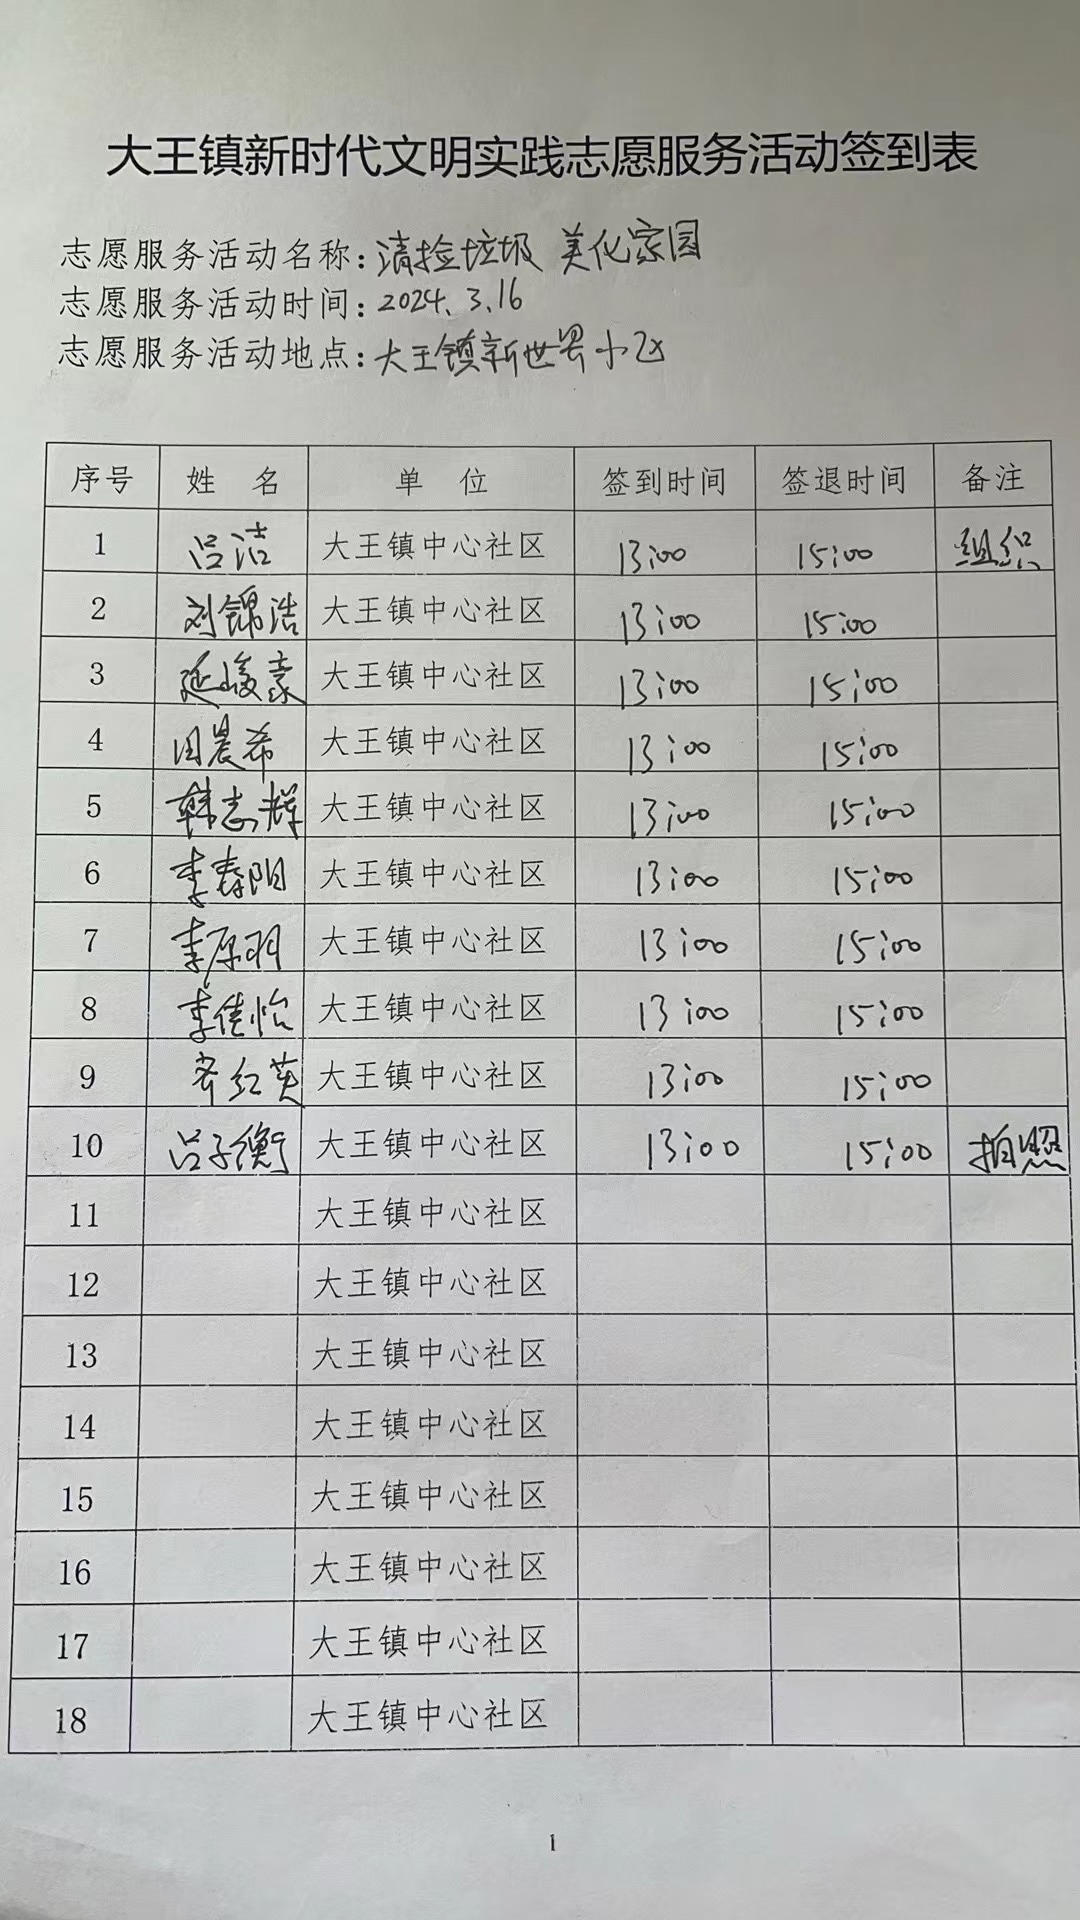 大王镇新时代文明实践志愿服务活动签到表
志愿服务活动名称:清捡垃圾 美化家园
志愿服务活动时间:2024.3.16
志愿服务活动地点:大王镇新世界小区
序号 姓 名 单 位 签到时间 签退时间 备注
1 吕洁 大王镇中心社区 13:00 15:00 组织
2 刘锦浩 大王镇中心社区 13:00 15:00
3 延峻豪 大王镇中心社区 13:00 15:00
4 田晨希 大王镇中心社区 13:00 15:00
5 韩志辉 大王镇中心社区 13:00 15:00
6 李春阳 大王镇中心社区 13:00 15:00
7 李原羽 大王镇中心社区 13:00 15:00
8 李佳怡 大王镇中心社区 13:00 15:00
9 齐红英 大王镇中心社区 13:00 15:00
10 吕子衡 大王镇中心社区 13:00 15:00 拍照
11 大王镇中心社区
12 大王镇中心社区
13 大王镇中心社区
14 大王镇中心社区
15 大王镇中心社区
16 大王镇中心社区
17 大王镇中心社区
18 大王镇中心社区
1